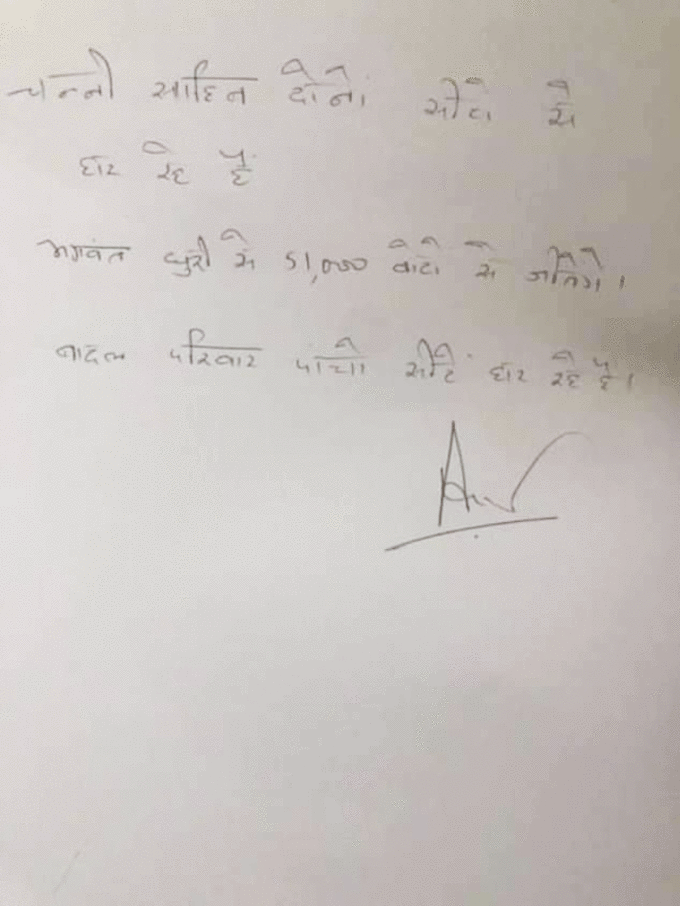 चन्नी साहिब दोनों सीटों से
हार रहे हैं
भगवंत धुरी से 51,000 वोटों से जीतेंगे।
बादल परिवार पांचों सीटें हार रहे हैं।